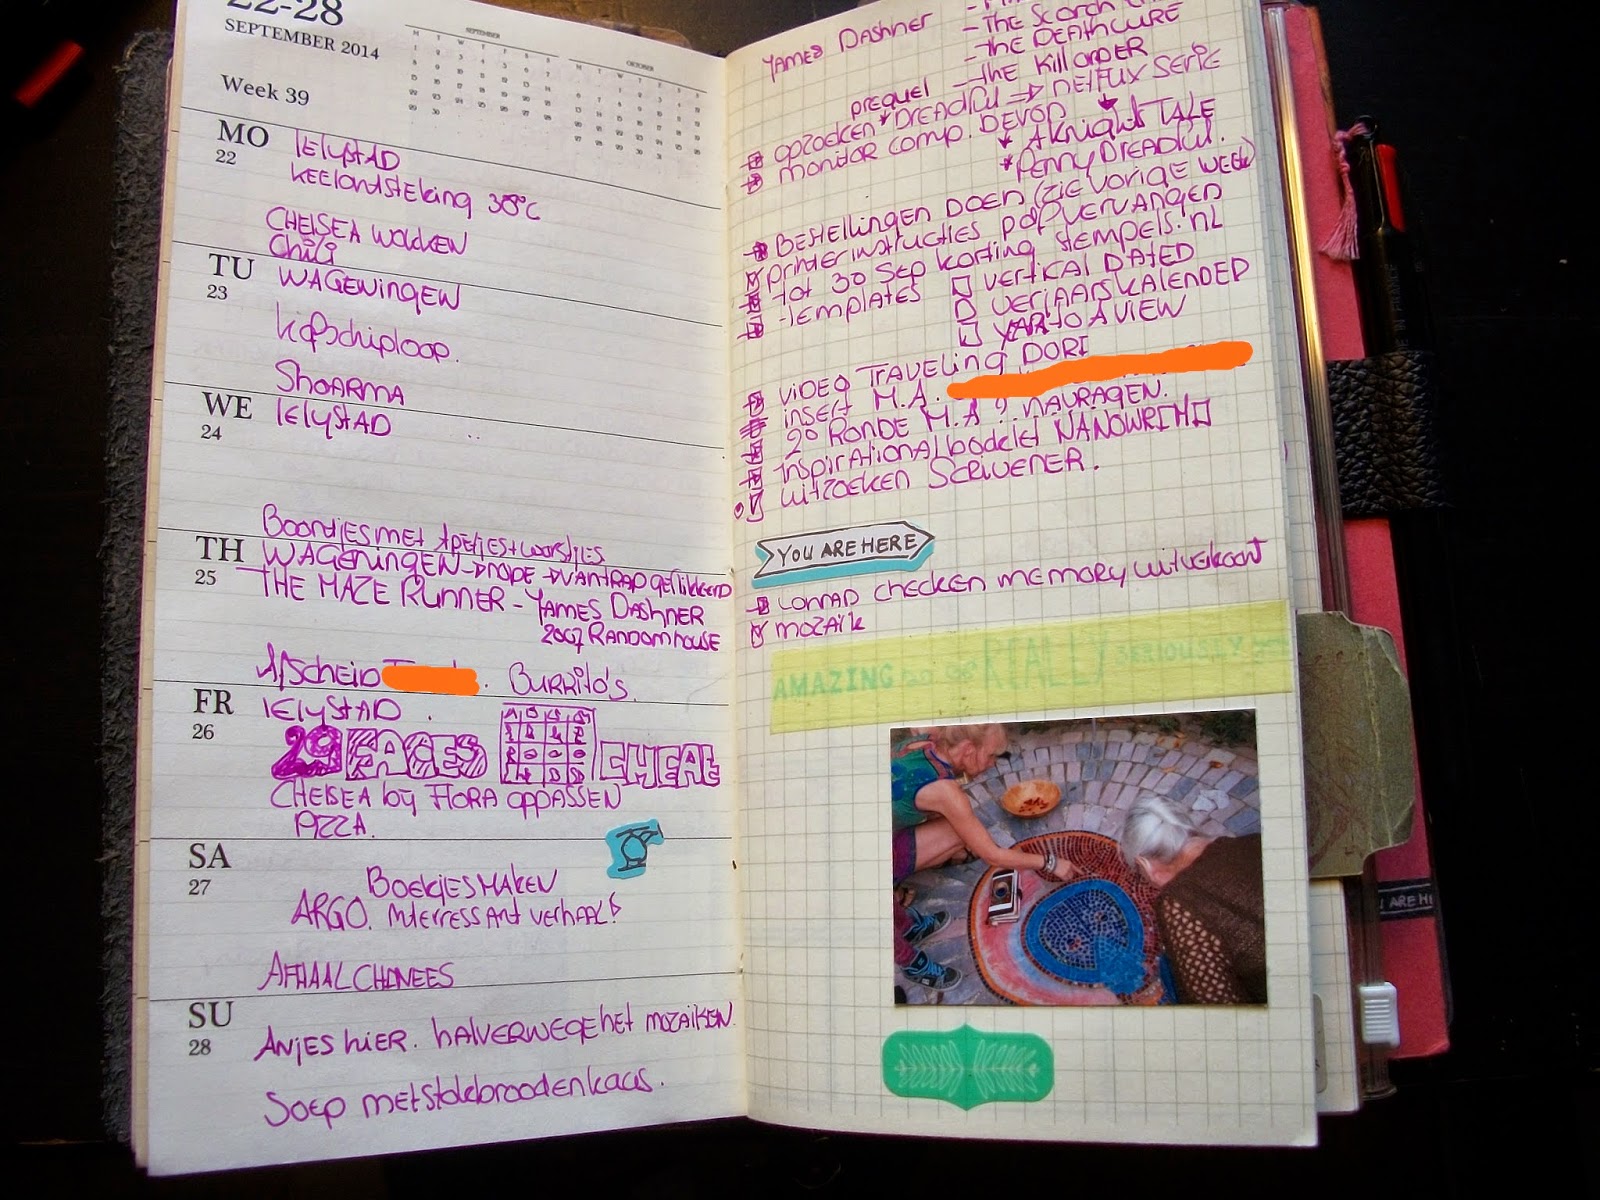 22-28
SEPTEMBER 2014
Week 39
SEPTEMBER
OKTOBER
MO
22
lelystAD
KEElontsteking 38°C
CHElSEA WOKKEN
Chili
TU
23
WAGENingEN
kipschijfloop.
SHOARMA
WE
24
lElystAD
Boontjes met
TH
25
WAGENINGEN
THE MAZE RUNNER - JAMES DASHNER
2007 RANDOMHOUSE
Afscheid
BURRITO'S.
FR
26
lElystAD.
29 FACES
CHEAt
CHElSEA bij FlORA oppASSEN
PIZZA.
SA
27
BoEkjES MAKEN
ARGO. interressant verhaal!
AfHAAlCHINEES
SU
28
ANJES hiER. hAlvERWEgE hEt mozaïKEN.
SoEp mEt stokbrood en kaas.
JAMES DASHNER
- the Scorch
- the DEAthCURE
prequel - the Kill ORDER
opzoeken * DREADful → NEtflix SERIE
monitor comp. DEVOP
* A Knights TALE
* Penny DREADful.
BEStellingen DOEN (ZIE VORIGE WEEK)
printerinstructies pdf vervangen
tot 30 SEp korting stempels.nl
- templates
VERtiCAl DATED
VERjAARSKAlENDER
YEAR to A VIEW
VIDEO TRAVEling DORI
insert M.A.
2e RONDE M.A? NAVRAGEN.
inspirational booklet NANOWRIMO
uitzoeken SCRIVENER.
YOU ARE HERE
CONRAD checken memory uitverkoopt
mozaïk
AMAZING
REALLY
SERIOUSLY
MADE IN FRANCE
U ARE HE